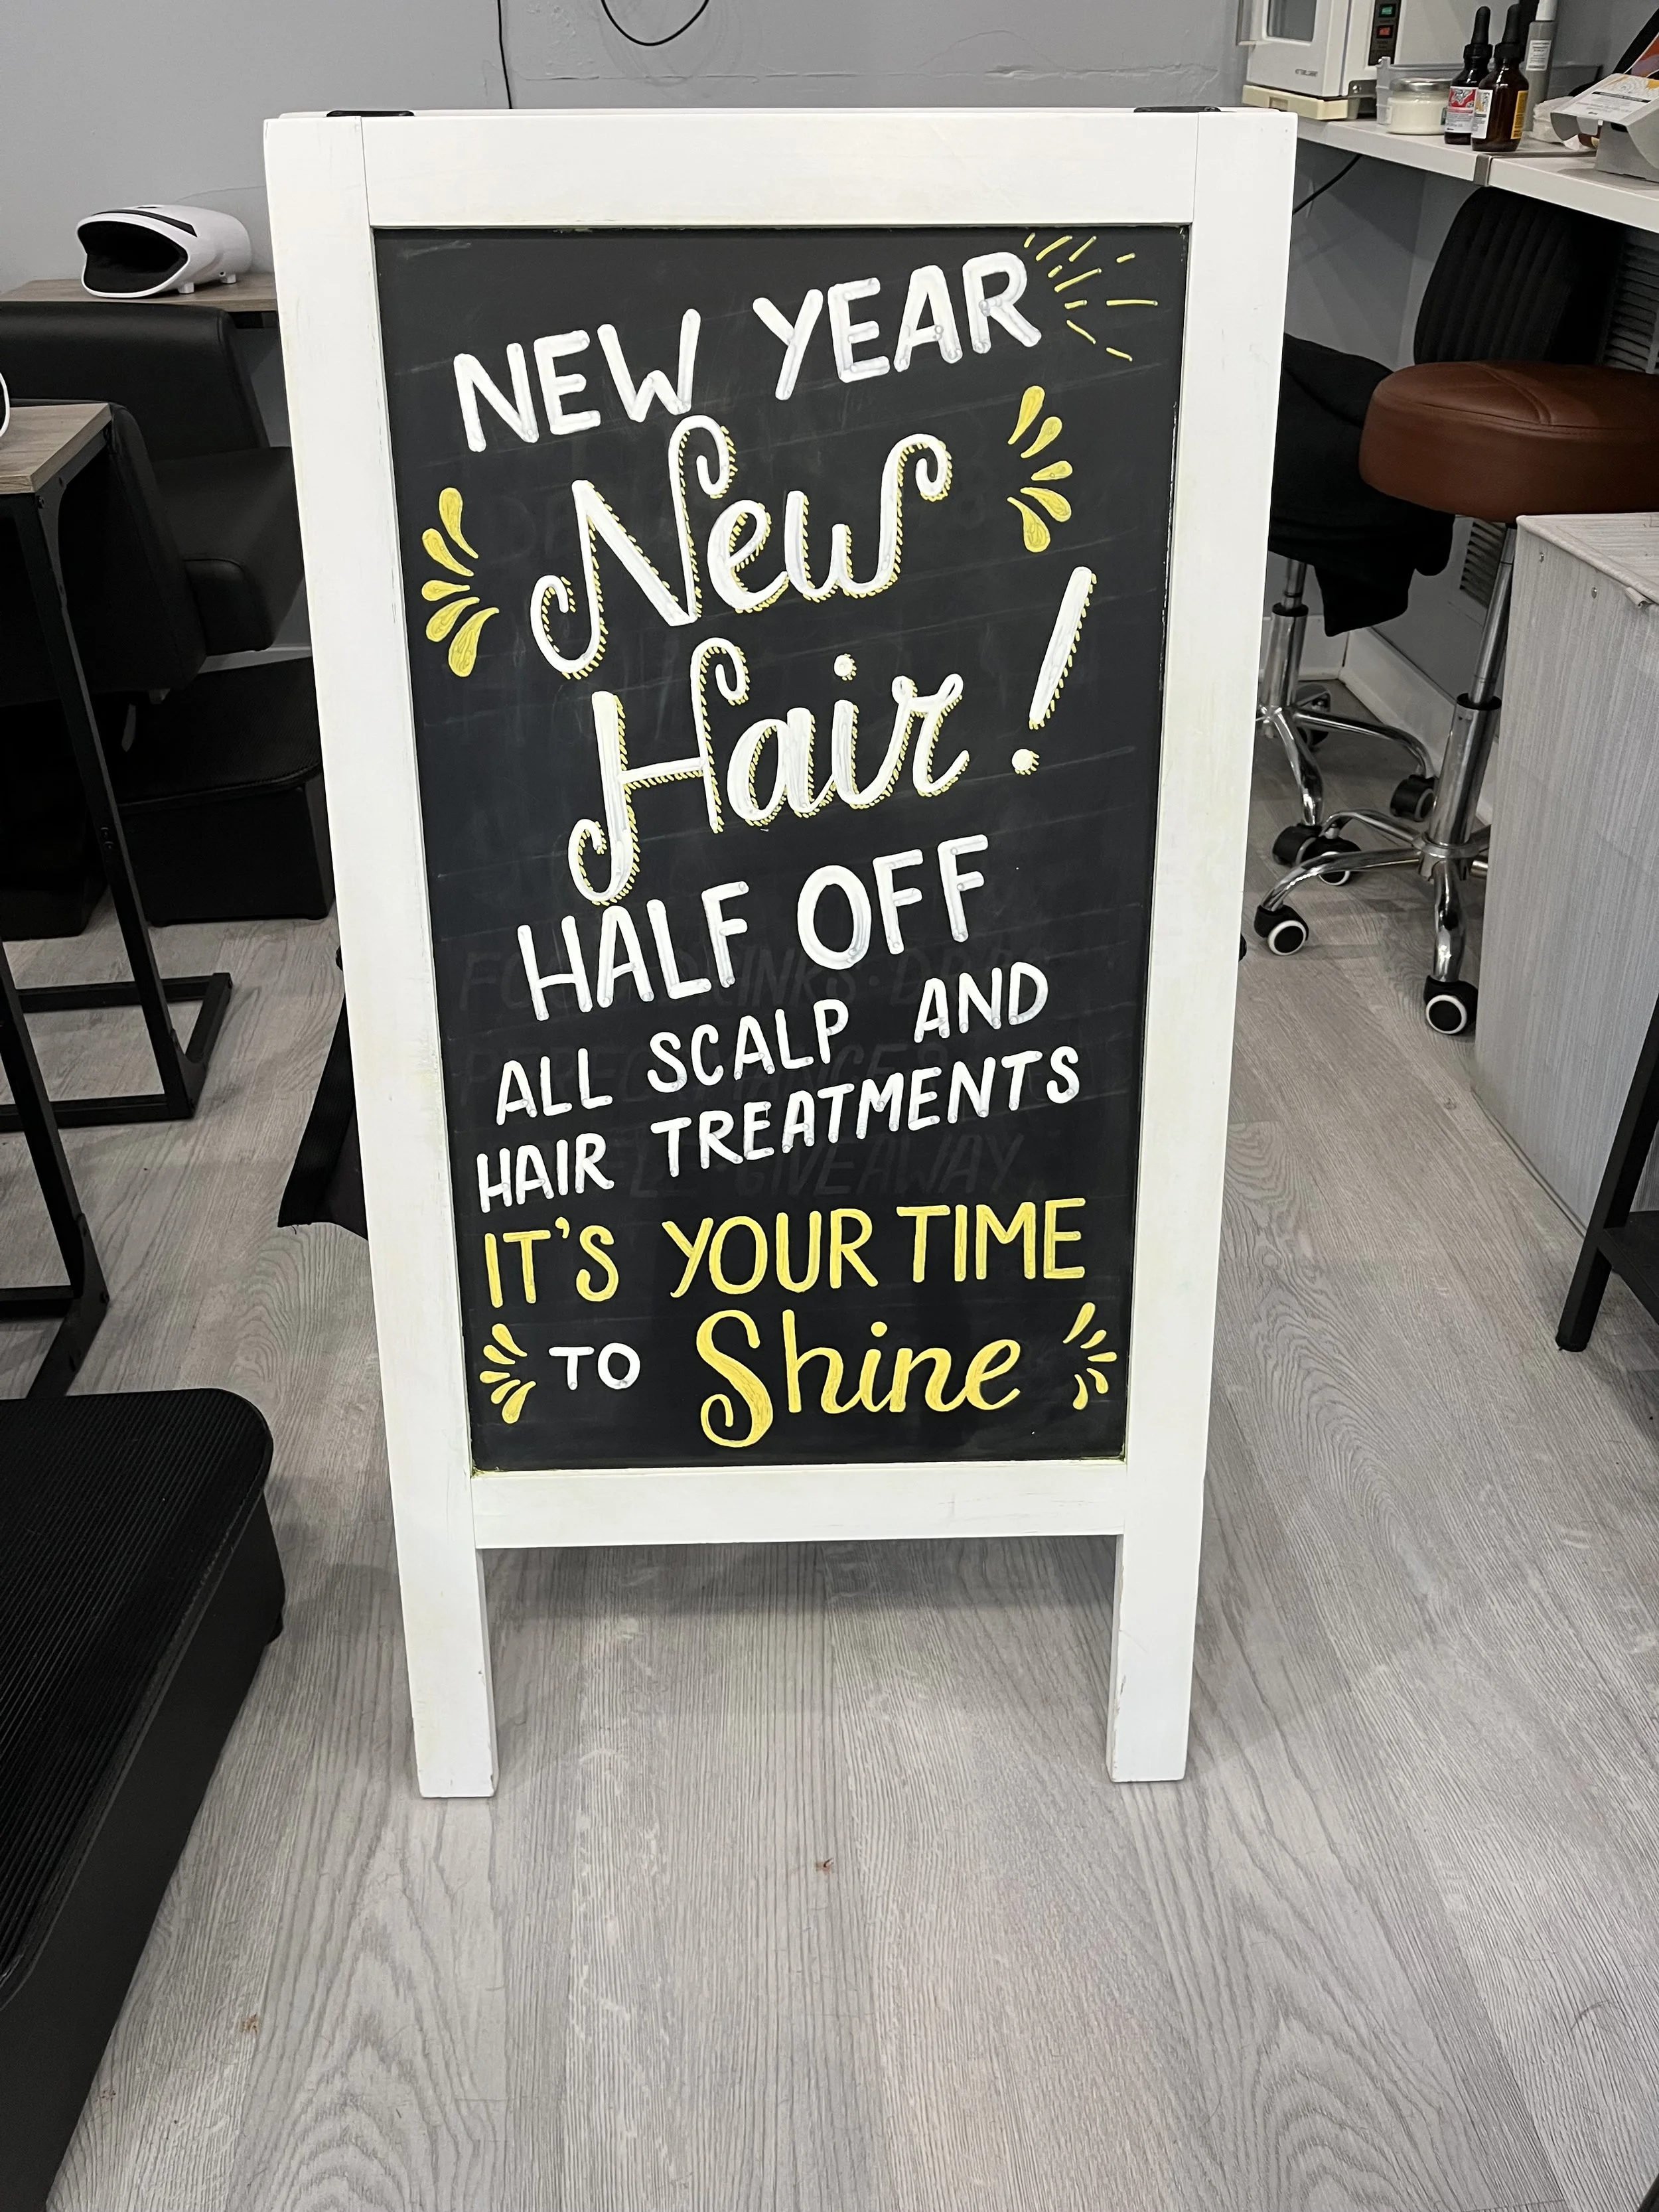 NEW YEAR
New
Hair!
HALF OFF
ALL SCALP AND
HAIR TREATMENTS
IT'S YOUR TIME
TO Shine